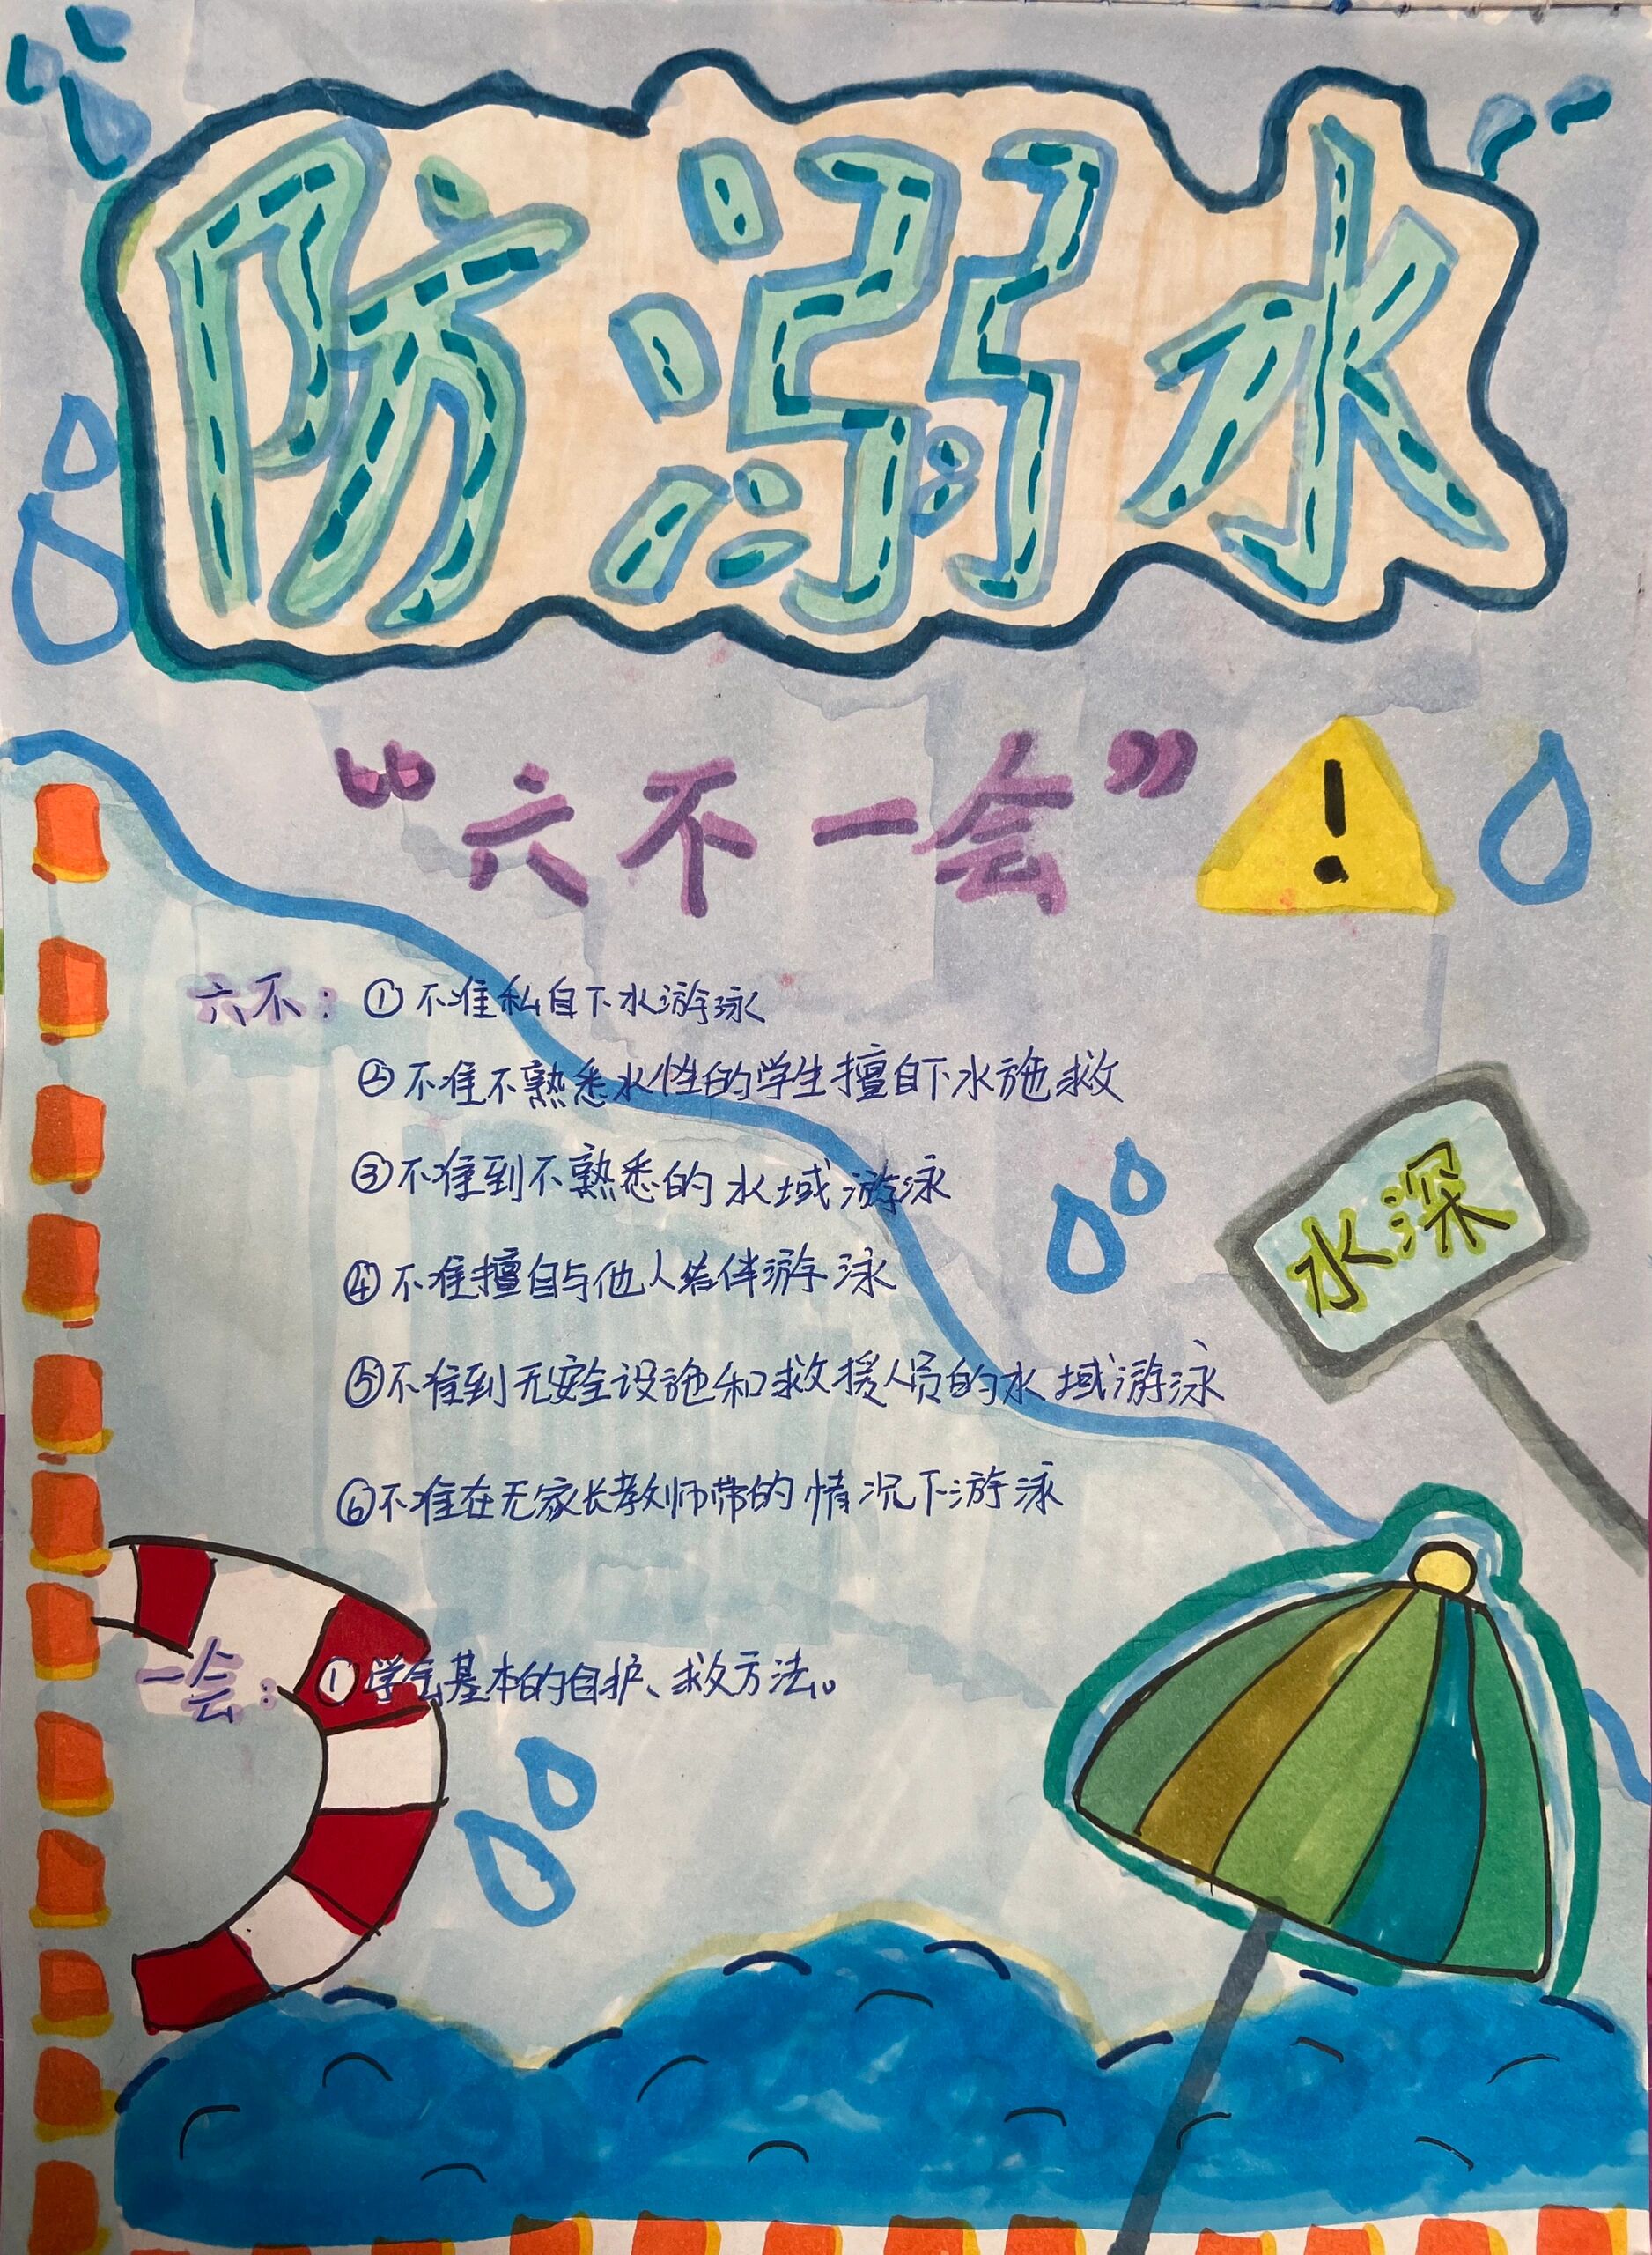 防溺水
“六不一会”!
六不：①不准私自下水游泳
②不准不熟悉水性的学生擅自下水施救
③不准到不熟悉的水域游泳
④不准擅自与他人结伴游泳
⑤不准到无安全设施和救援人员的水域游泳
水深
⑥不准在无家长教师带的情况下游泳
一会：①学会基本的自护、救方法。